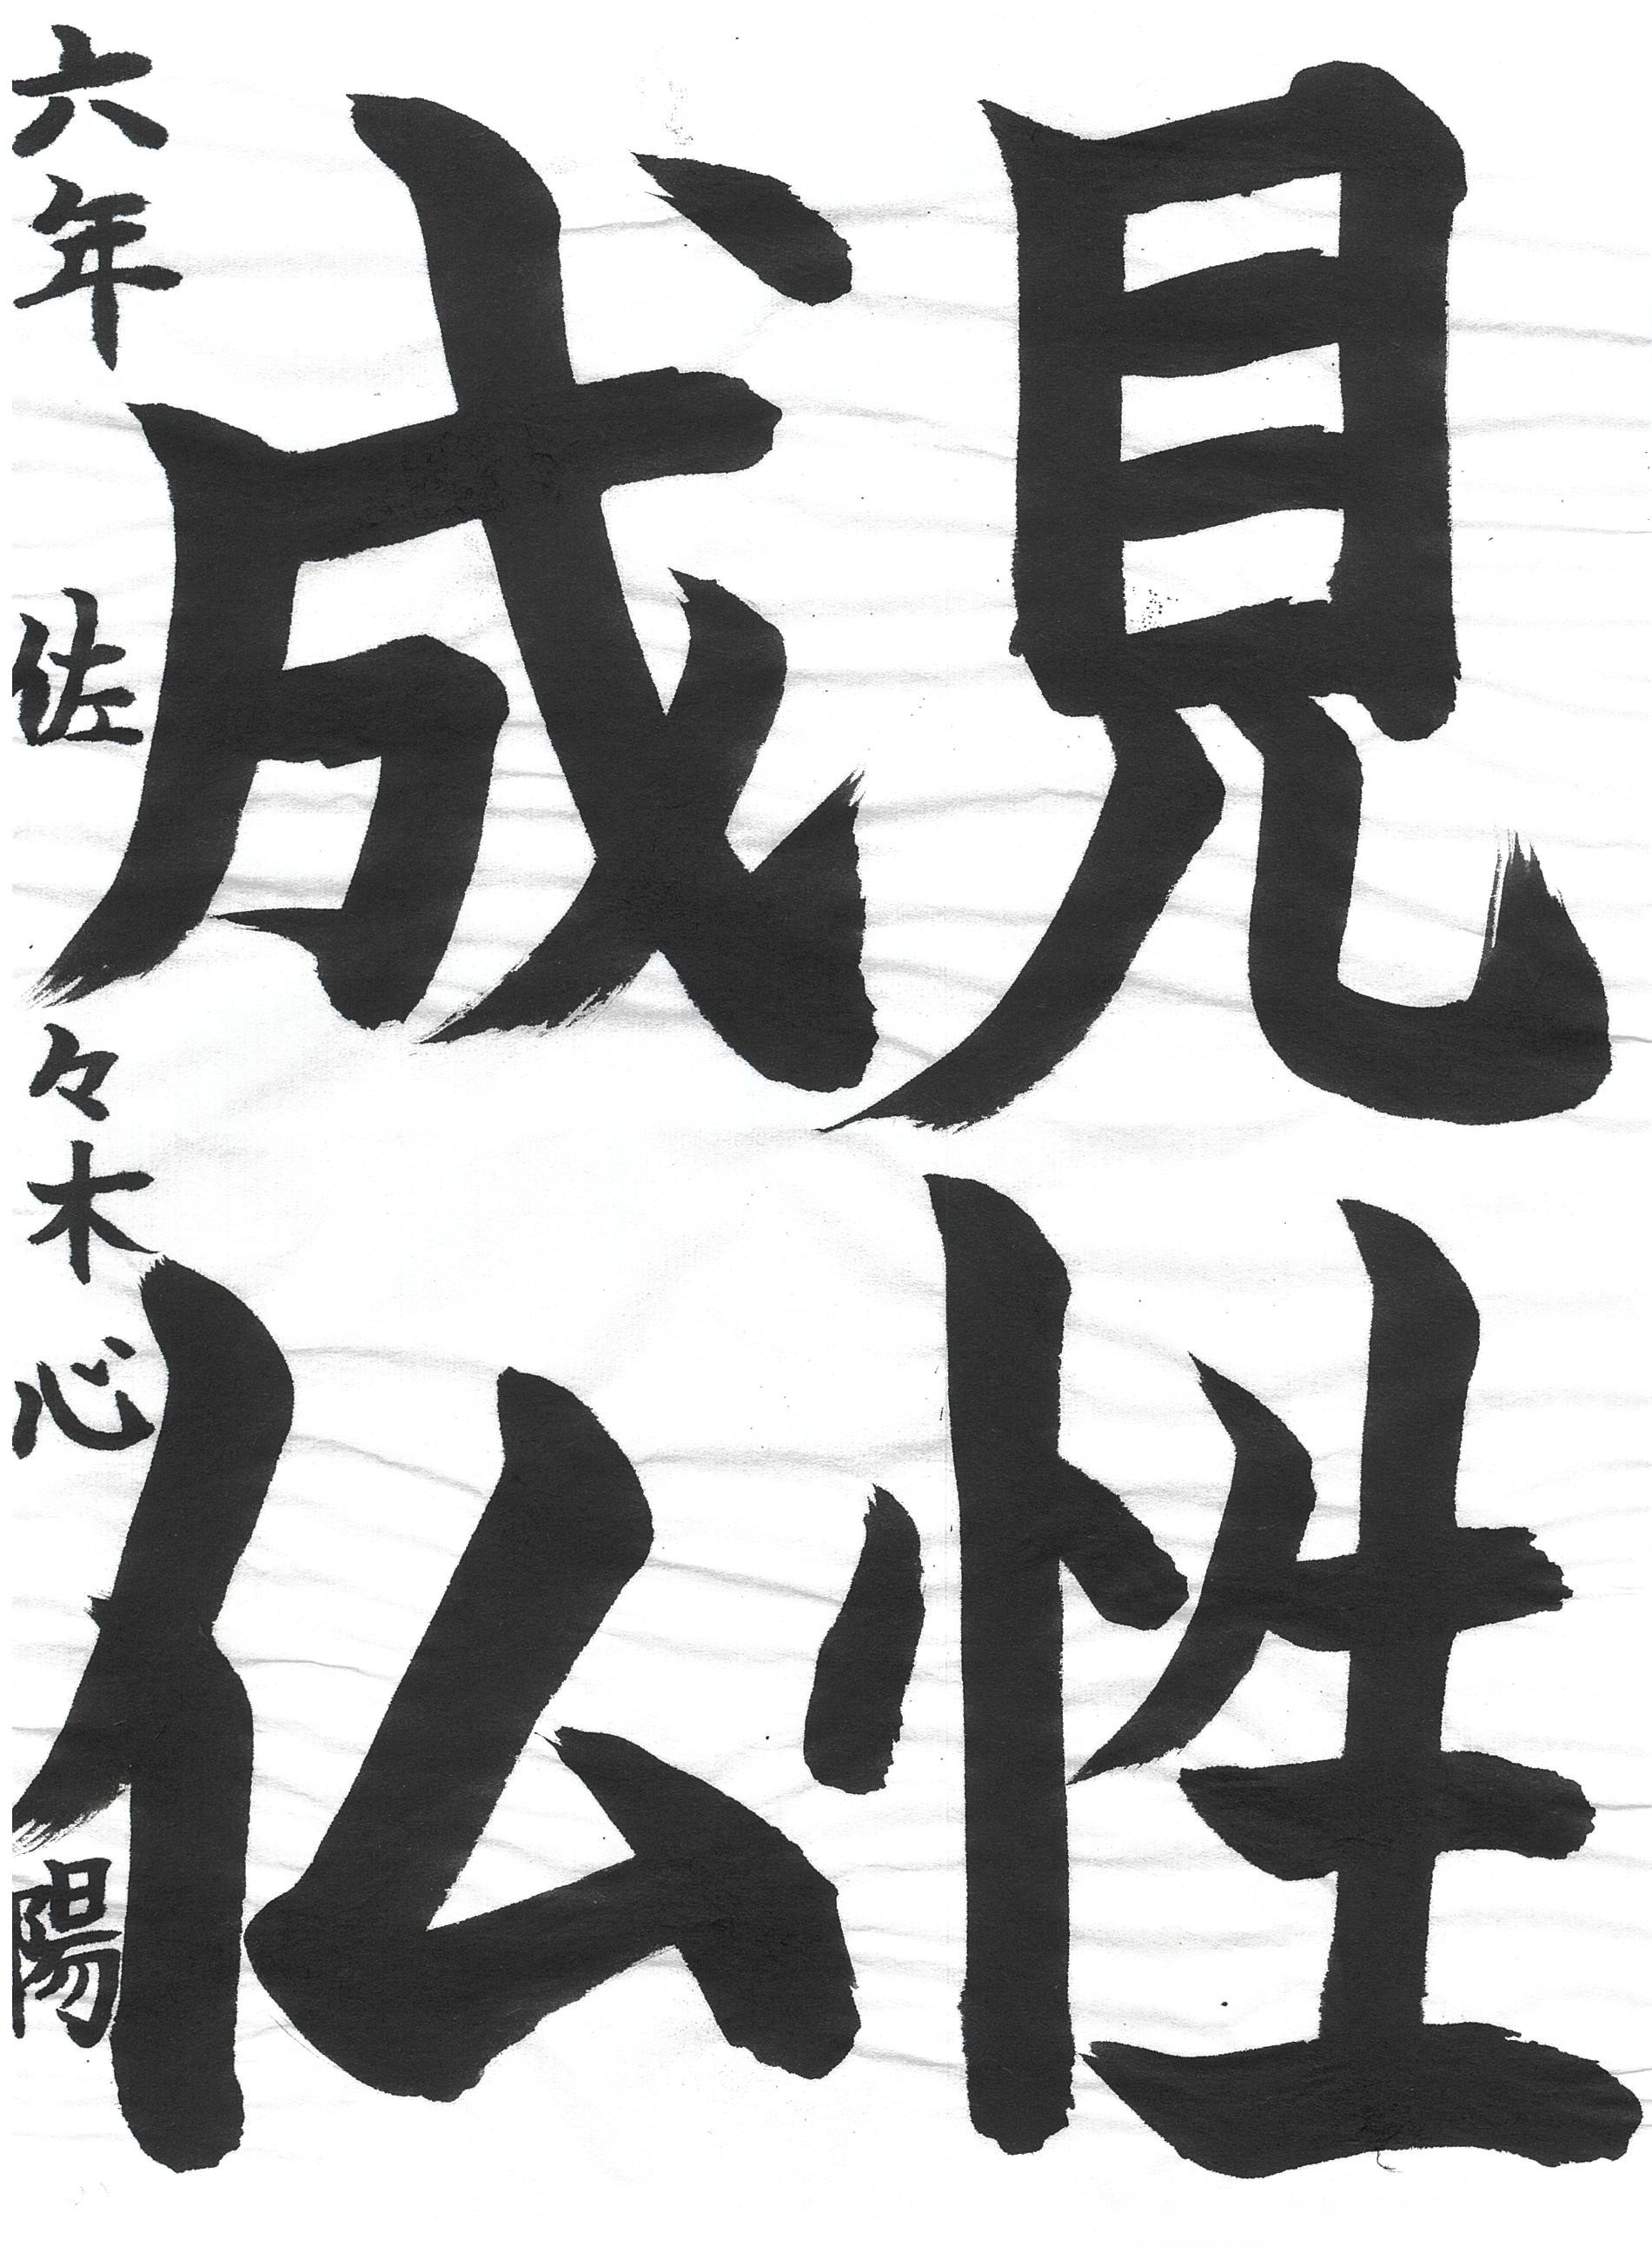 見性
成仏
六年 佐々木心陽